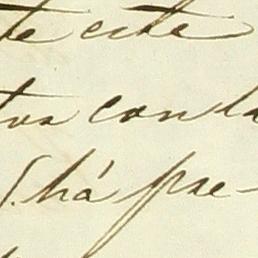 te este
tos con la
S. há pre-